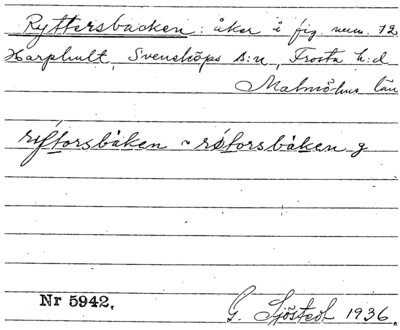 Ryttersbacken: åker i fig. num. 12
Harphult, Svensköps s:n, Frosta h:d
Malmöhus län
ryforsbåken ~ røforsbåken g
Nr 5942.
G. Sjöstedt 1936.